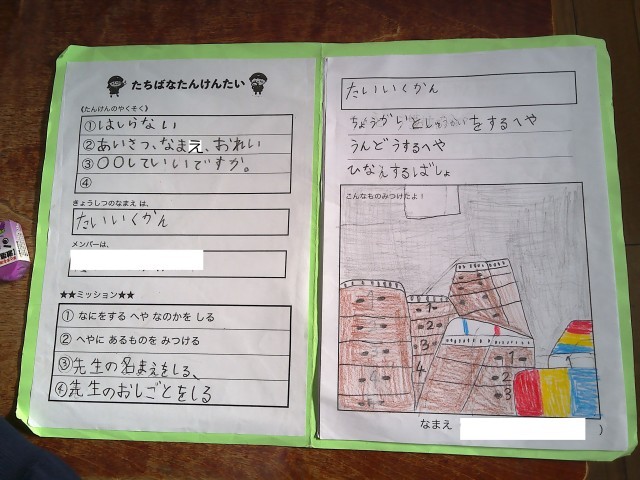 たちばなたんけんたい
《たんけんのやくそく》
①はしらない
②あいさつ、なまえ、おれい
③〇〇していいですか。
④
きょうしつのなまえ は、
たいいくかん
メンバーは、
★★ミッション★★
① なにをする へや なのかを しる
② へやに あるものを みつける
③先生の名まえをしる、
④先生のおしごとをしる
たいいくかん
をするへや
うんどうするへや
ひなんするばしょ
こんなものみつけたよ!
1
2
3
4
1
2
3
4
1
2
3
なまえ
)